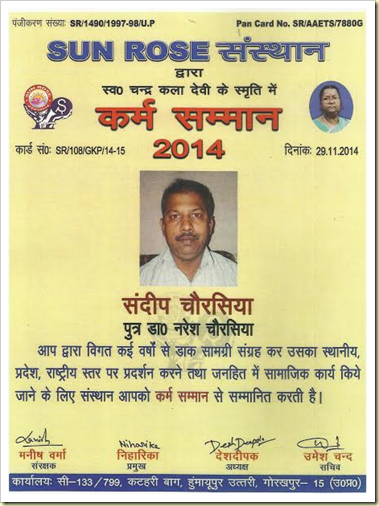 पंजीकरण संख्याः SR/1490/1997-98/U.P Pan Card No. SR/AAETS/7880G
SUN ROSE संस्थान
द्वारा
स्व0 चन्द्र कला देवी के स्मृति में
कर्म सम्मान
2014
कार्ड सं0: SR/108/GKP/14-15 दिनांक: 29.11.2014
संदीप चौरसिया
पुत्र डा0 नरेश चौरसिया
आप द्वारा विगत कई वर्षो से डाक सामग्री संग्रह कर उसका स्थानीय,
प्रदेश, राष्ट्रीय स्तर पर प्रदर्शन करने तथा जनहित में सामाजिक कार्य किये
जाने के लिए संस्थान आपको कर्म सम्मान से सम्मानित करती है।
Niharika
मनीष वर्मा निहारिका देशदीपक उमेश चन्द
संरक्षक प्रमुख अध्यक्ष सचिव
कार्यालयः सी-133/799, कटहरी बाग, हुंमायूपुर उत्तरी, गोरखपुर- 15 (उ0प्र0)